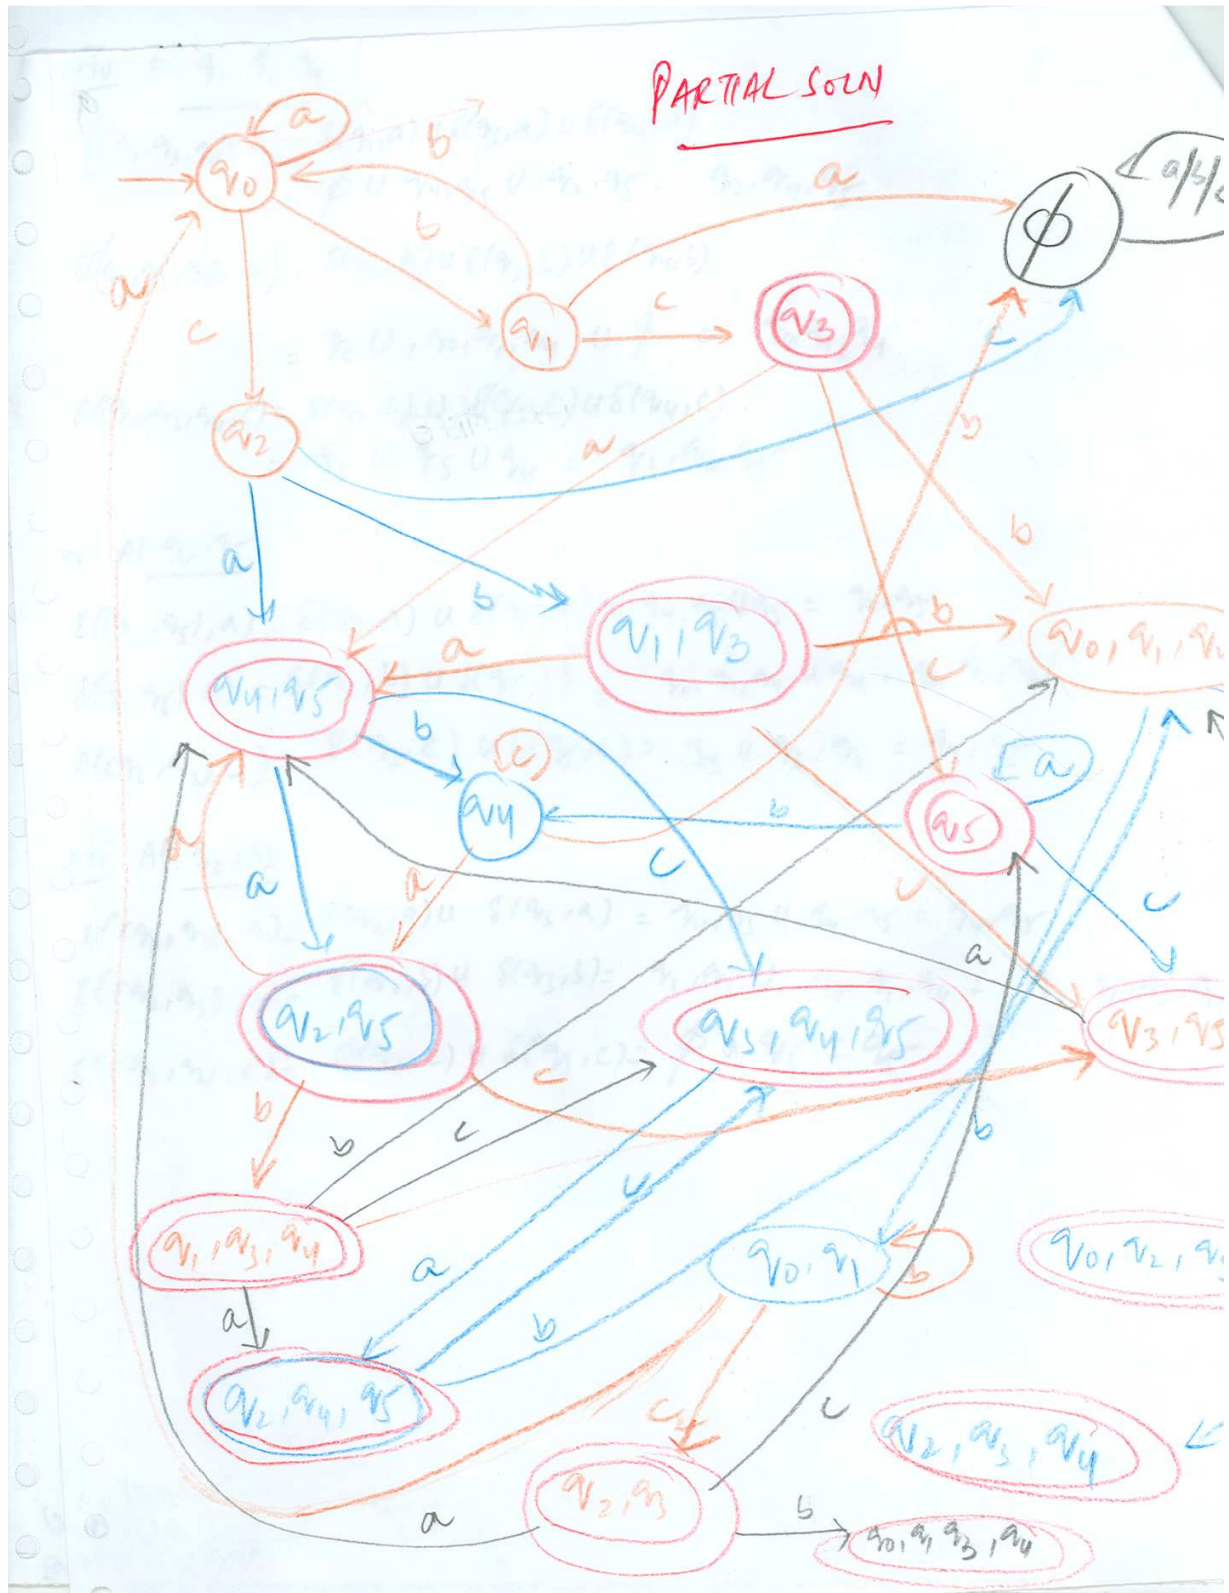 PARTIAL SOLN
a
b
q0
a
a/b/
ϕ
b
a
c
q1
c
q3
c
q2
a
b
a
b
a
b
q1, q3
b
q0, q1, q4
a
c
q4, q5
b
c
a
q4
b
q5
c
a
a
a
c
c
a
q2, q5
q3, q4, q5
q3, q5
c
b
b
c
b
c
q1, q3, q4
a
q0, q1
b
q0, q2, q
a
b
q2, q4, q5
c
c
q2, q3, q4
q2, q3
a
b
q0, q1, q3, q4